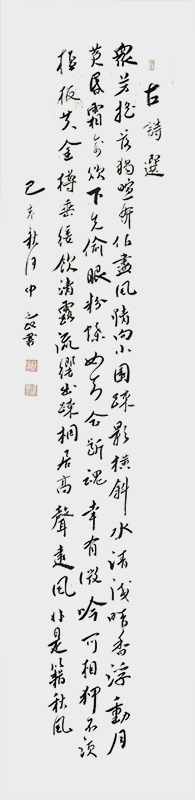 古詩選
衆芳搖落獨暄妍佔盡風情向小園疎影橫斜水清淺暗香浮動月
黄昏霜禽欲下先偷眼粉蝶如知合斷魂幸有微吟可相狎不須
檀板共金樽垂緌飲清露流響出疎桐居高聲遠風非是籍秋風
己亥秋月中 書